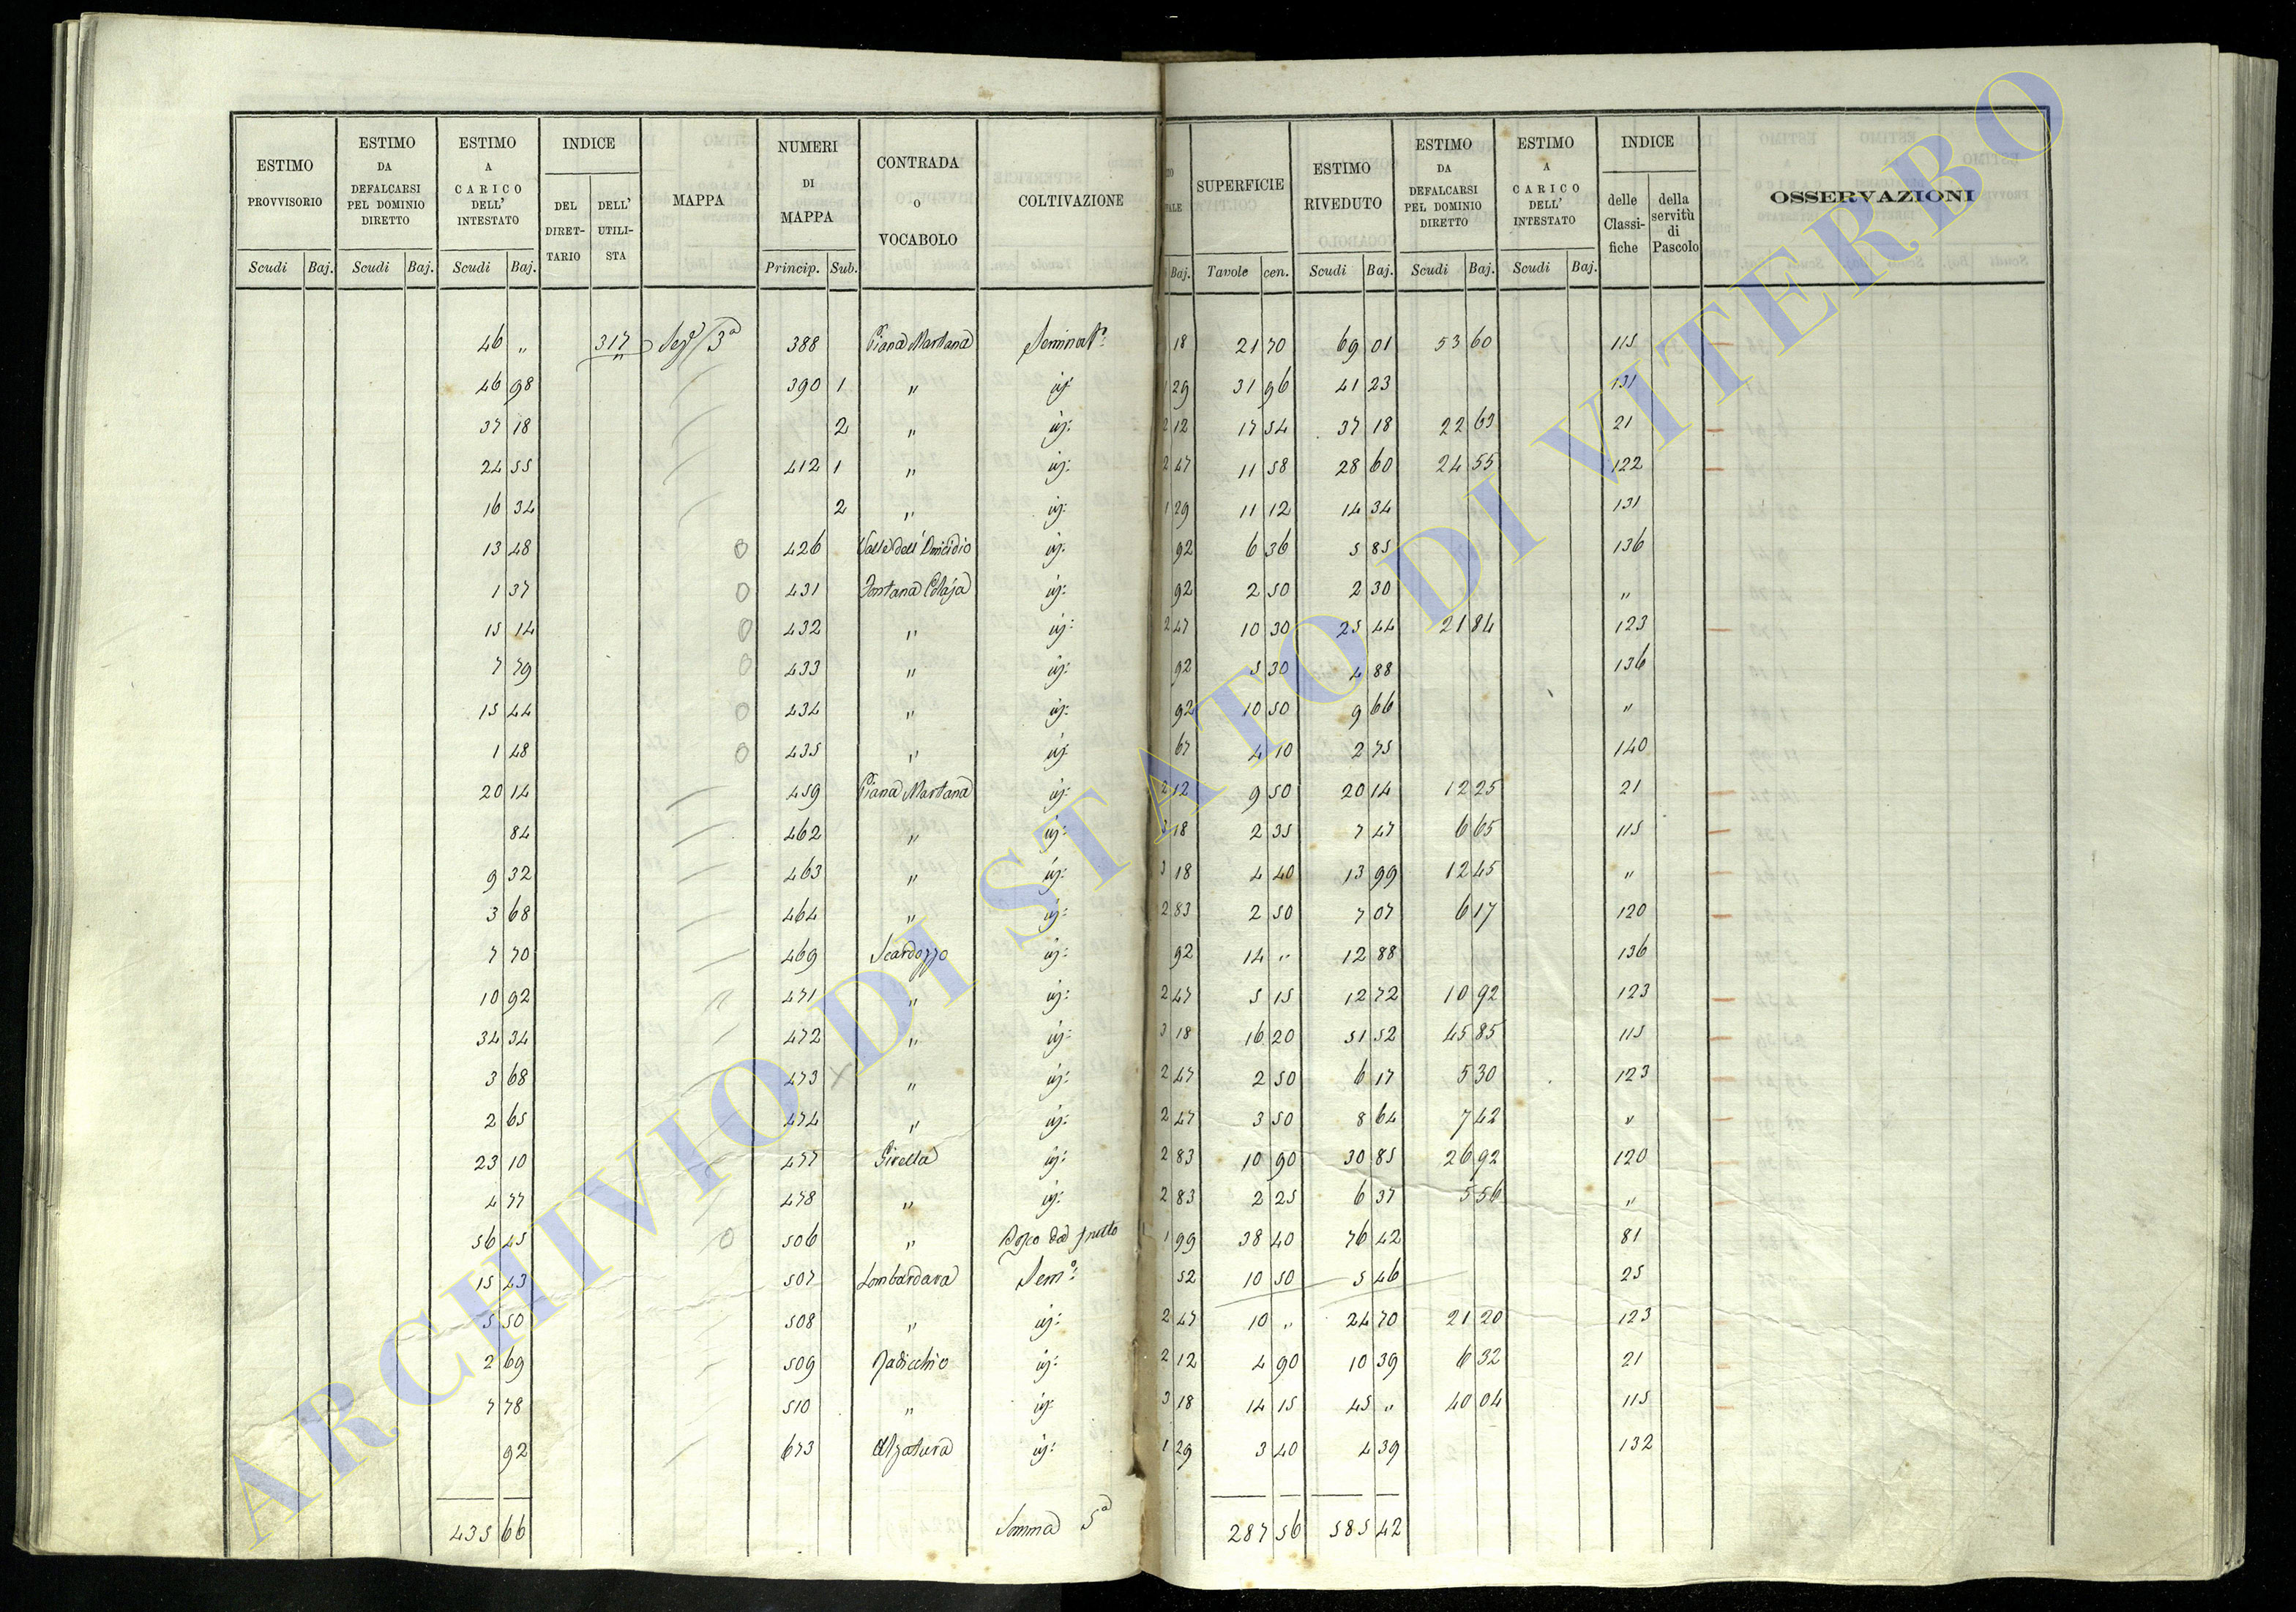 ESTIMO PROVVISORIO Scudi Baj. | ESTIMO DA DEFALCARSI PEL DOMINIO DIRETTO Scudi Baj. | ESTIMO A CARICO DELL' INTESTATO Scudi Baj. | INDICE DEL DIRET-TARIO | DELL' UTILI-STA | MAPPA | NUMERI DI MAPPA Princip. Sub. | CONTRADA O VOCABOLO | COLTIVAZIONE | Baj. | SUPERFICIE Tavole cen. | ESTIMO RIVEDUTO Scudi Baj. | ESTIMO DA DEFALCARSI PEL DOMINIO DIRETTO Scudi Baj. | ESTIMO A CARICO DELL' INTESTATO Scudi Baj. | INDICE delle Classi-fiche | della servitù di Pascolo | OSSERVAZIONI
46 " 317 Sez.e 3a 388 Piana Martana Seminat.o 18 21 70 69 01 53 60 115
46 98 390 1 " id: 1 29 31 96 41 23 131
37 18 2 " id: 2 12 17 54 37 18 22 63 21
24 55 412 1 " id: 2 47 11 58 28 60 24 55 122
16 34 2 " id: 1 29 11 12 14 34 131
13 48 426 Valle dell'Omicidio id: 92 6 36 5 85 136
1 37 431 Fontana id: 92 2 50 2 30 "
15 14 432 " id: 2 47 10 30 25 44 21 84 123
7 79 433 " id: 92 5 30 4 88 136
15 44 434 " id: 92 10 50 9 66 "
1 48 435 " id: 67 4 10 2 75 140
20 14 459 Piana Martana id: 2 12 9 50 20 14 12 25 21
84 462 " id: 3 18 2 35 7 47 6 65 115
9 32 463 " id: 3 18 4 40 13 99 12 45 "
3 68 464 " id: 2 83 2 50 7 07 6 17 120
7 70 469 Scardozzo id: 92 14 " 12 88 136
10 92 471 " id: 2 47 5 15 12 72 10 92 123
34 34 472 " id: 3 18 16 20 51 52 45 85 115
3 68 473 " id: 2 47 2 50 6 17 5 30 123
2 65 474 " id: 2 47 3 50 8 64 7 42 "
23 10 477 Girella id: 2 83 10 90 30 85 26 92 120
4 77 478 " id: 2 83 2 25 6 37 5 56 "
56 45 506 " Bosco da frutto 1 99 38 40 76 42 81
15 43 507 Lombardara Sem.o: 52 10 50 5 46 25
5 50 508 " id: 2 47 10 " 24 70 21 20 123
2 69 509 Radicchio id: 2 12 4 90 10 39 6 32 21
7 78 510 " id: 3 18 14 15 45 " 40 04 115
92 673 Alzatura id: 1 29 3 40 4 39 132
435 66 Somma 5a 287 56 585 42
ARCHIVIO DI STATO DI VITERBO